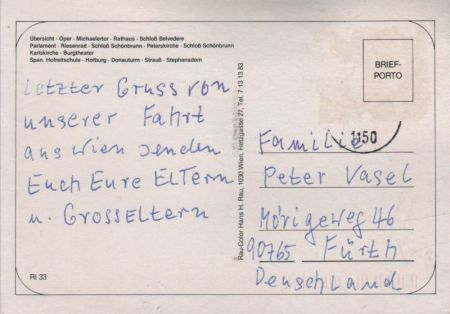 Übersicht · Oper · Michaelertor · Rathaus · Schloß Belvedere
Parlament · Riesenrad · Schloß Schönbrunn · Peterskirche · Schloß Schönbrunn
Karlskirche · Burgtheater
Span. Hofreitschule · Hofburg · Donauturm · Strauß · Stephansdom
Letzter Gruss von
unserer Fahrt
aus Wien senden
Euch Eure Eltern
u. Grosseltern
RI 33
Rau-Color Hans H. Rau, 1030 Wien, Hetzgasse 27, Tel. 7 13 13 83
BRIEF-
PORTO
1150
Familie
Peter Vasel
Mörigeweg 46
90765 Fürth
Deuschland